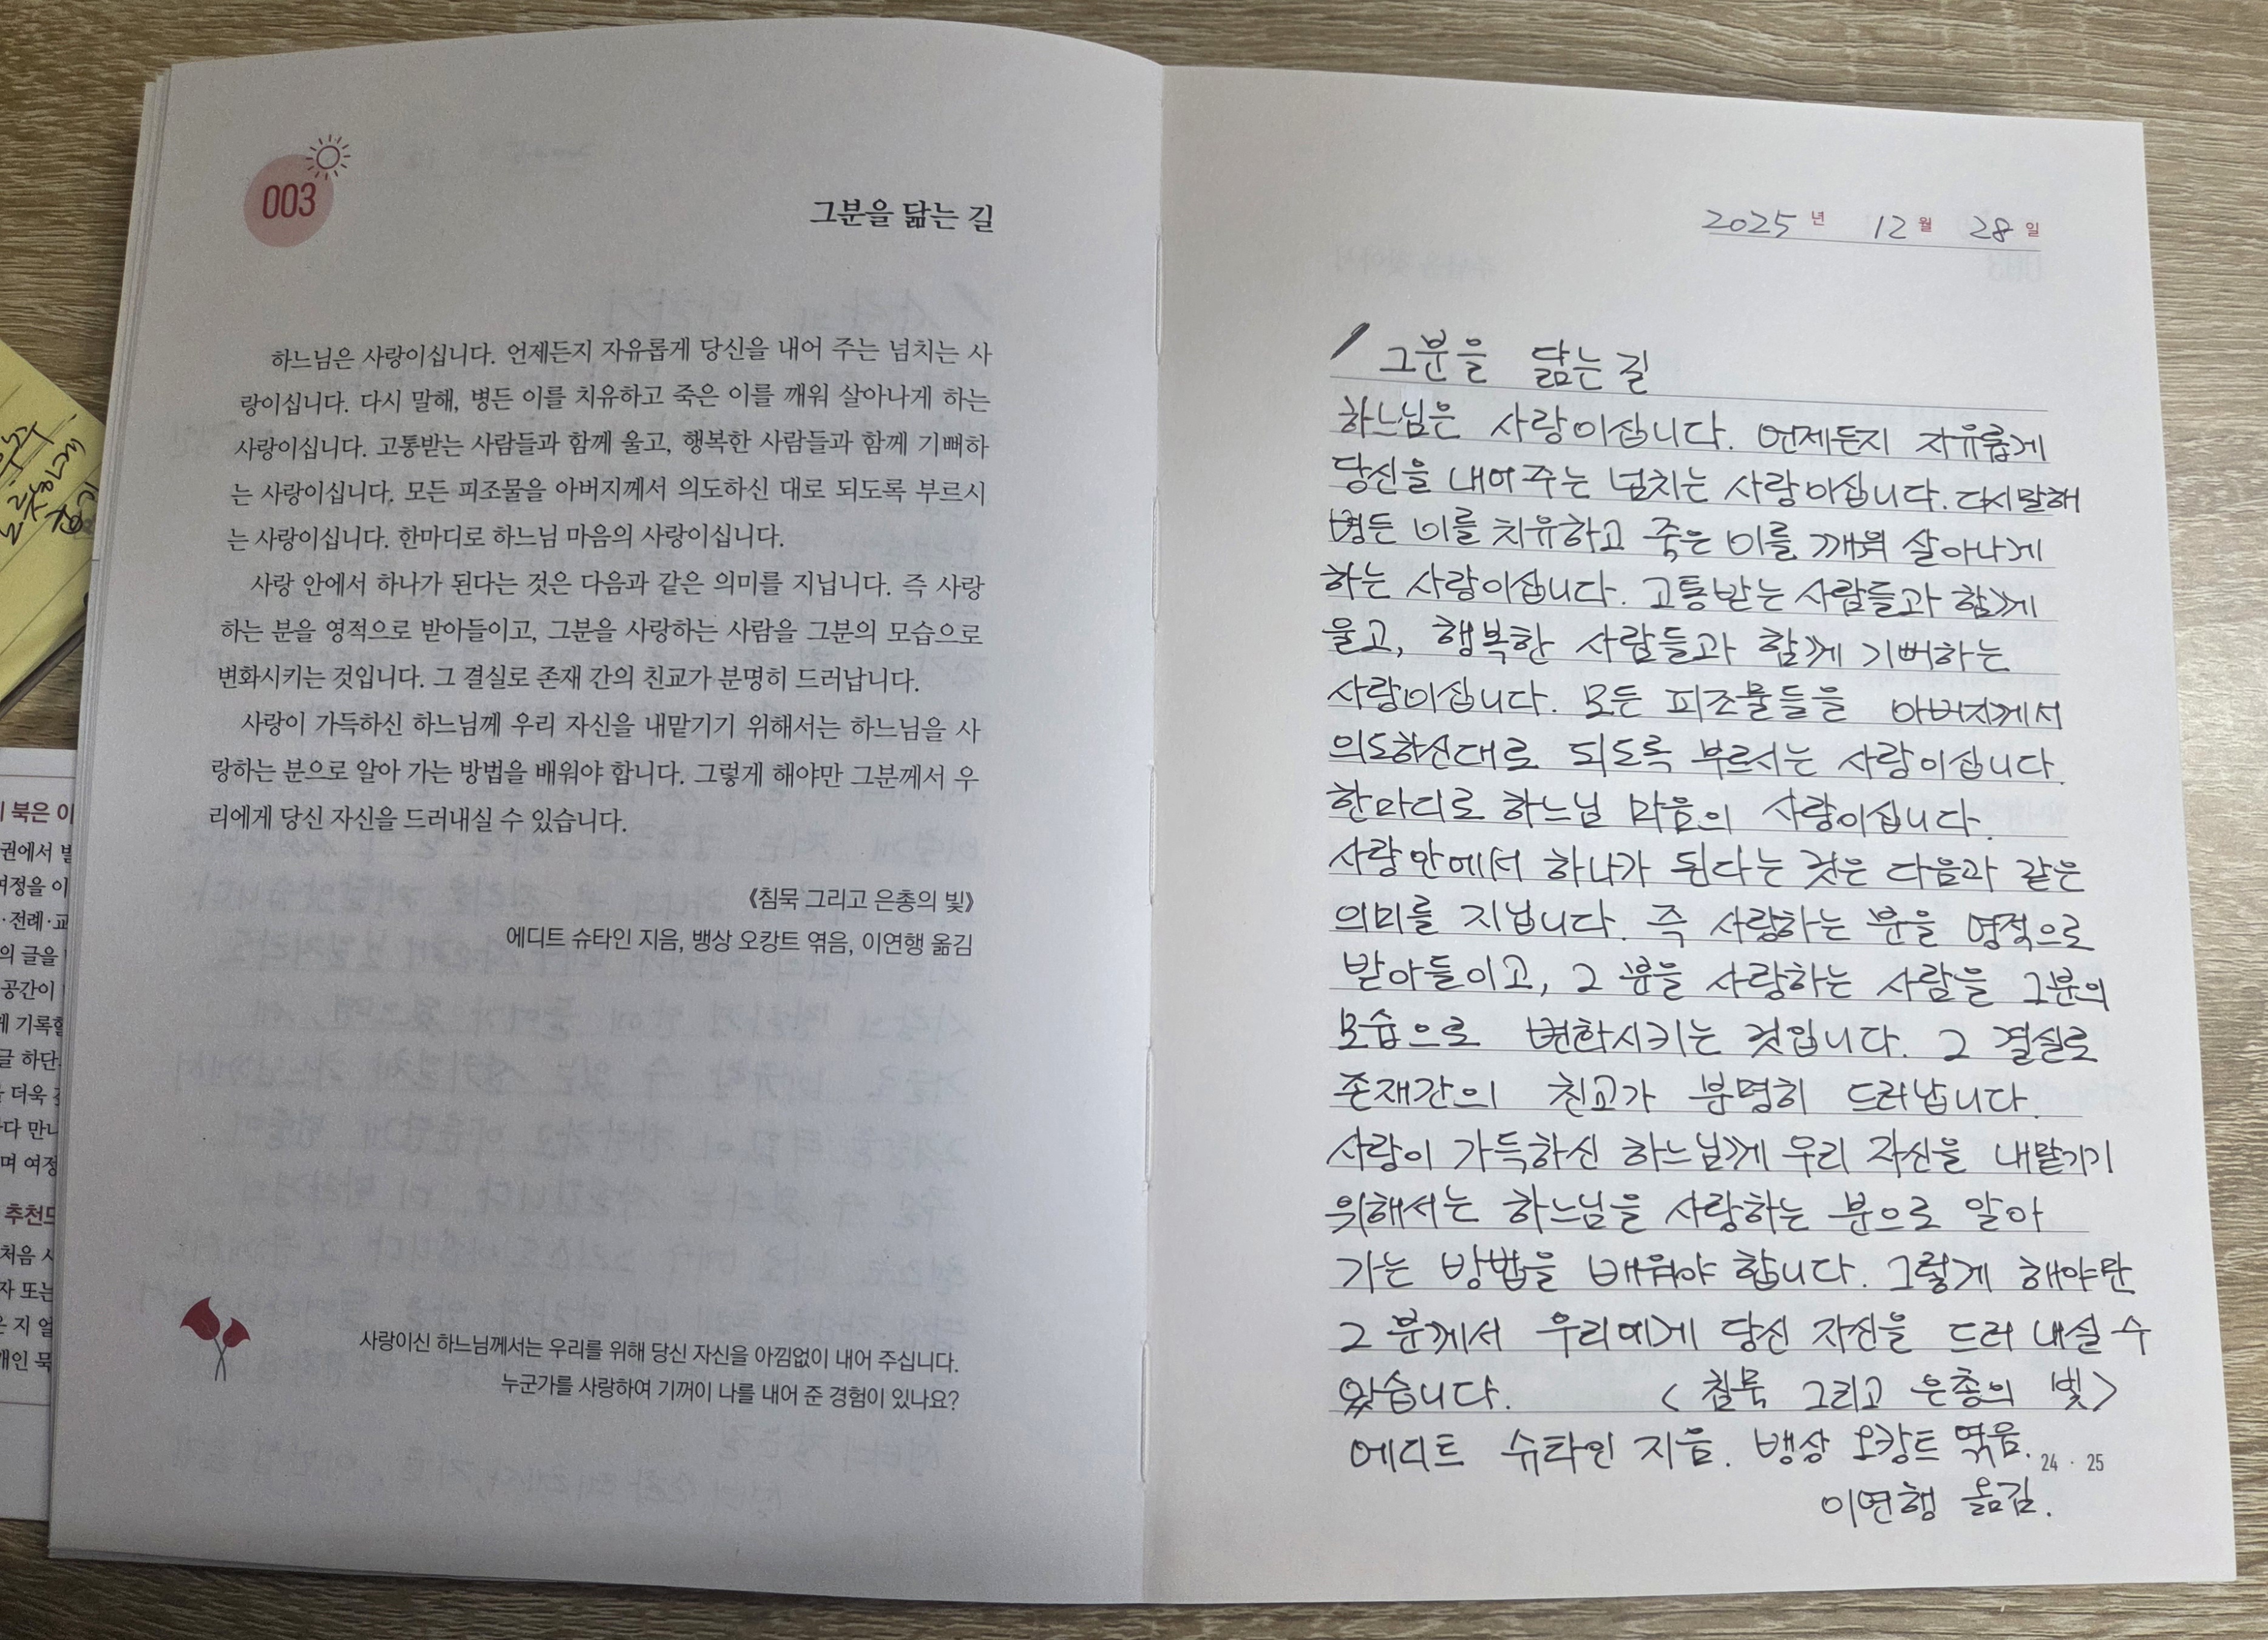 003
그분을 닮는 길
하느님은 사랑이십니다. 언제든지 자유롭게 당신을 내어 주는 넘치는 사
랑이십니다. 다시 말해, 병든 이를 치유하고 죽은 이를 깨워 살아나게 하는
사랑이십니다. 고통받는 사람들과 함께 울고, 행복한 사람들과 함께 기뻐하
는 사랑이십니다. 모든 피조물을 아버지께서 의도하신 대로 되도록 부르시
는 사랑이십니다. 한마디로 하느님 마음의 사랑이십니다.
사랑 안에서 하나가 된다는 것은 다음과 같은 의미를 지닙니다. 즉 사랑
하는 분을 영적으로 받아들이고, 그분을 사랑하는 사람을 그분의 모습으로
변화시키는 것입니다. 그 결실로 존재 간의 친교가 분명히 드러납니다.
사랑이 가득하신 하느님께 우리 자신을 내맡기기 위해서는 하느님을 사
랑하는 분으로 알아 가는 방법을 배워야 합니다. 그렇게 해야만 그분께서 우
리에게 당신 자신을 드러내실 수 있습니다.
《침묵 그리고 은총의 빛》
에디트 슈타인 지음, 뱅상 오캉트 엮음, 이연행 옮김
사랑이신 하느님께서는 우리를 위해 당신 자신을 아낌없이 내어 주십니다.
누군가를 사랑하여 기꺼이 나를 내어 준 경험이 있나요?
2025년 12월 28일
그분을 닮는 길
하느님은 사랑이십니다. 언제든지 자유롭게
당신을 내어 주는 넘치는 사랑이십니다. 다시 말해
병든 이를 치유하고 죽은 이를 깨워 살아나게
하는 사랑이십니다. 고통받는 사람들과 함께
울고, 행복한 사람들과 함께 기뻐하는
사랑이십니다. 모든 피조물들을 아버지께서
의도하신대로 되도록 부르시는 사랑이십니다.
한마디로 하느님 마음의 사랑이십니다.
사랑안에서 하나가 된다는 것은 다음과 같은
의미를 지닙니다. 즉 사랑하는 분을 영적으로
받아들이고, 그 분을 사랑하는 사람을 그분의
모습으로 변화시키는 것입니다. 그 결실로
존재간의 친교가 분명히 드러납니다.
사랑이 가득하신 하느님께 우리 자신을 내맡기기
위해서는 하느님을 사랑하는 분으로 알아
가는 방법을 배워야 합니다. 그렇게 해야만
그 분께서 우리에게 당신 자신을 드러 내실 수
있습니다. < 침묵 그리고 은총의 빛>
에디트 슈타인 지음. 뱅상 오캉트 엮음.
24 · 25
이연행 옮김.
북은 이
권에서
여정을 이
·전례·교
의 글을
공간이
글 하단
더욱
다 만나
며 여정
처음
자 또는
개인 묵